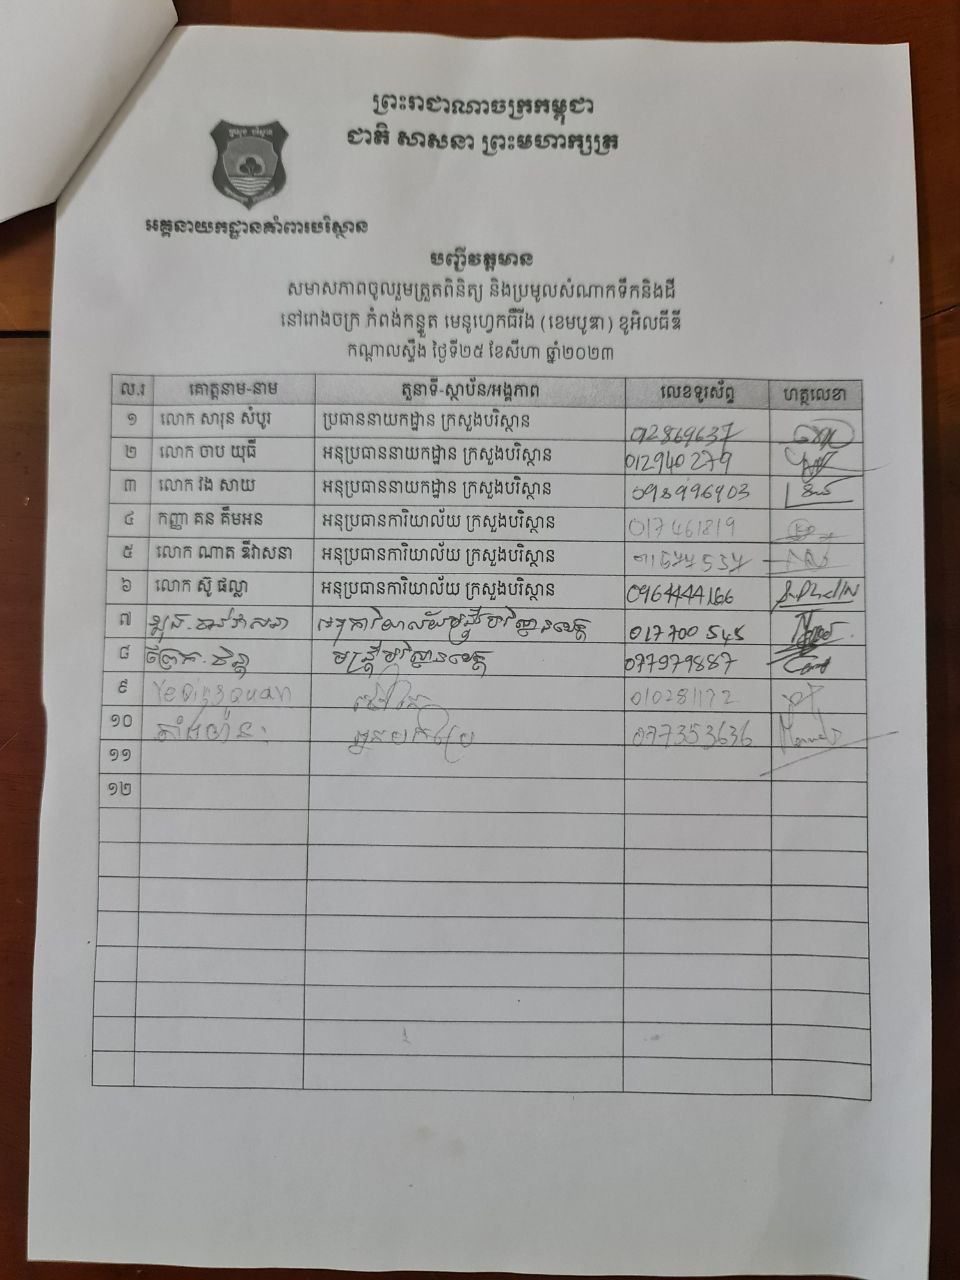 ព្រះរាជាណាចក្រកម្ពុជា
ជាតិ សាសនា ព្រះមហាក្សត្រ
អគ្គនាយកដ្ឋានគាំពារបរិស្ថាន
បញ្ជីវត្តមាន
សមាសភាពចូលរួមត្រួតពិនិត្យ និងប្រមូលសំណាកទឹកនិងដី
នៅរោងចក្រ កំពង់កន្ទួត មេនូហ្វេកធឺរីង (ខេមបូឌា) ខូអិលធីឌី
កណ្តាលស្ទឹង ថ្ងៃទី២៥ ខែសីហា ឆ្នាំ២០២៣
ល.រ គោត្តនាម-នាម តួនាទី-ស្ថាប័ន/អង្គភាព លេខទូរស័ព្ទ ហត្ថលេខា
១ លោក សារុន សំបូរ ប្រធាននាយកដ្ឋាន ក្រសួងបរិស្ថាន 012869637
២ លោក ចាប យុធី អនុប្រធាននាយកដ្ឋាន ក្រសួងបរិស្ថាន 012940279
៣ លោក វង សាយ អនុប្រធាននាយកដ្ឋាន ក្រសួងបរិស្ថាន 098996903
៤ កញ្ញា គន គឹមអន អនុប្រធានការិយាល័យ ក្រសួងបរិស្ថាន 017461819
៥ លោក ណាត ឌីវាសនា អនុប្រធានការិយាល័យ ក្រសួងបរិស្ថាន
៦ លោក ស៊ូ ផល្លា អនុប្រធានការិយាល័យ ក្រសួងបរិស្ថាន 0964444166
៧ 017700545
៨ មន្ត្រីបរិស្ថានខេត្ត 077979887
៩ 010281172
១០ អ្នកបកប្រែ 077353636
១១
១២